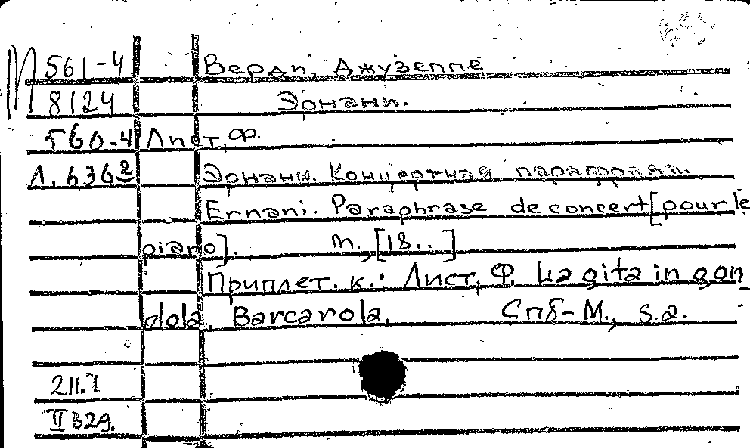 П 561-4 Верди, Джузеппе
8124 Эрнани.
560-4 Лист, Ф.
Л. 6362 Эрнани. Концертная парафраза.
Ernani. Paraphrase de concert [pour le
piano]. м., [18..]
Приплет. к.: Лист, Ф. La gita in gon
dola. Barcarola. Спб-М., s.a.
211.1
II в 29.